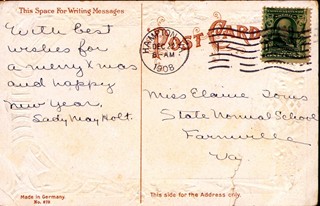 This Space For Writing Messages
With best
wishes for
a merry Xmas
and happy
New Year,
Lady May Holt.
Made in Germany.
No. 476
POST CARD
HAMPTON
DEC 22
8-AM
1908
Miss Elaine
State Normal School
Farmville
Va
This side for the Address only.